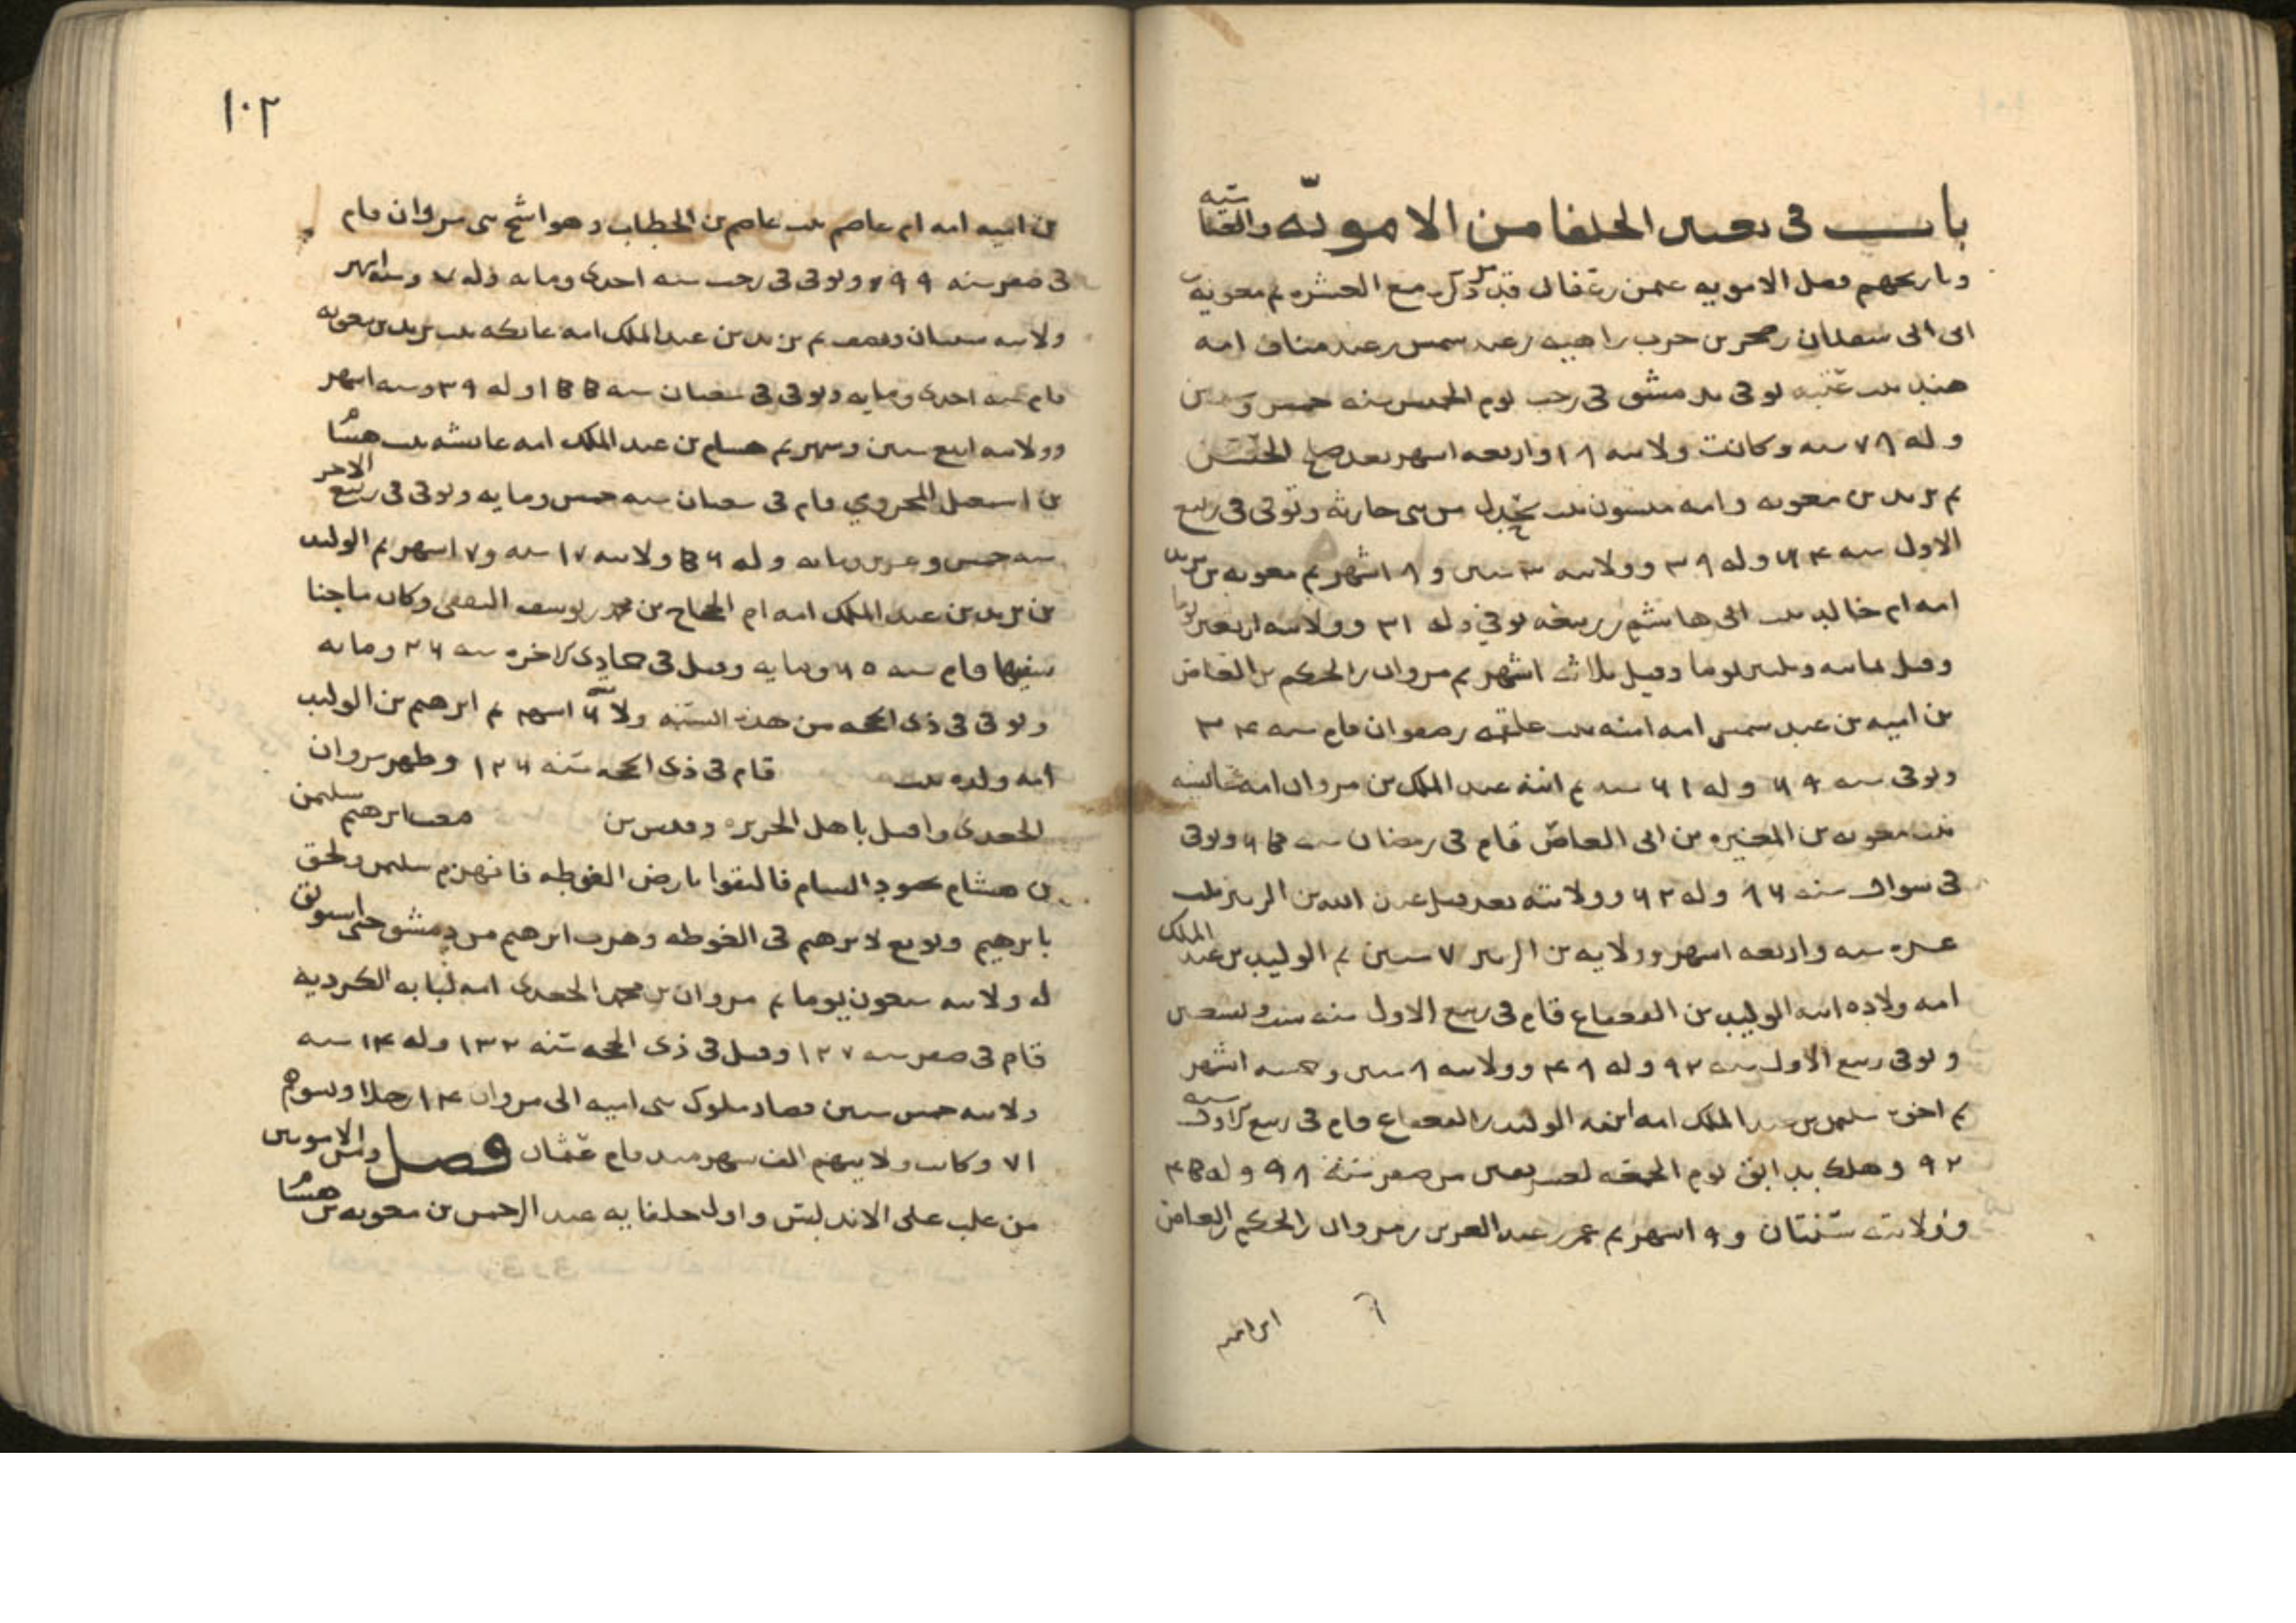 باب في تعيين الخلفا من الاموية والعباسية
وتاريخهم فصل الاموية عثمن بن عفان قد ذكر مع العشره ثم معوية بن
ابى سفيان صخر بن حرب بن اميه بن عبد شمس بن عبد مناف امه
هند بنت عتبه توفى بدمشق فى رجب يوم الخميس سنه خمس وستين
وله ٧٨ سنه وكانت ولايته ١٨ واربعه اشهر بعد صلح الحسن
ثم يزيد بن معويه وامه ميسون بنت بحدل من بنى حارثه وتوفى فى ربيع
الاول سنه ٦٤ وله ٣٩ وولايته ٣ سنين و ٨ اشهر ثم معويه بن يزيد
امه ام خالد بنت ابى هاشم بن ربيعه توفي وله ٢١ وولايته اربعين يوما
وقيل ثمانيه وثلثين يوما وقيل ثلاثه اشهر ثم مروان بن الحكم بن العاص
بن اميه بن عبد شمس امه امنه بنت علقمه بن صفوان قام سنه
وتوفى سنه وله ٦١ سنه ثم ابنه عبد الملك بن مروان امه عائشه
بنت معويه بن المغيره بن ابى العاص قام فى رمضان سنه وتوفى
فى شوال سنه ٨٦ وله ٦٢ وولايته بعد قتل عبد الله بن الزبير ثلث
عشره سنه واربعه اشهر وولايه بن الزبير ٧ سنين ثم الوليد بن عبد الملك
امه ولاده ابنه الوليد بن القعقاع قام فى ربيع الاول سنه ست وتسعين
وتوفى ربيع الاول سنه ٩٢ وله ٤٨ وولايته ٨ سنين وخمسه اشهر
ثم اخوه سليمن بن عبد الملك امه ابنه الوليد بن القعقاع قام فى ربيع الاول سنه
٩٢ وهلك بدابق يوم الجمعه لعشر بقين من صفر سنة ٩٨ وله
وولايته سنتان و ٩ اشهر ثم عمر بن عبد العزيز بن مروان بن الحكم بن العاص
ابراهيم
١٠٢
بن اميه امه ام عاصم بنت عاصم بن الخطاب وهو اشج بنى مروان قام
فى صفر سنه ٩٩ وتوفى فى رجب سنه احدى ومايه وله وسته اشهر
ولايته سنتان ونصف ثم يزيد بن عبد الملك امه عاتكه بنت يزيد بن معويه
قام سنه احدى ومايه وتوفى فى شعبان سنه وله ٣٩ وسته اشهر
وولايته اربع سنين وشهر ثم هشام بن عبد الملك امه عائشه بنت هشام
بن اسمعيل المخزومي قام فى شعبان سنه خمس ومايه وتوفى فى ربيع الاخر
سنه خمس وعشرين ومايه وله ولايته ١٧ سنه و٧ اشهر ثم الوليد
بن يزيد بن عبد الملك امه ام الحجاج بن محمد بن يوسف الثقفى وكان ماجنا
سفيها قام سنه ٦٥ ومايه وقتل فى جمادى الاخره سنه ٢٦ ومايه
وتوفى فى ذى الحجه من هذه السنه ولايته ٦ اشهر ثم ابرهيم بن الوليد
امه ولده بنت قام فى ذى الحجه سنه ١٢٦ وظهر مروان
الجعدى واقبل باهل الجزيره وقدس بن ابرهيم سليمن
بن هشام بجنود الشام فالتقوا بارض الغوطه فانهزم سليمن ولحق
بابرهيم وبويع لابرهيم فى الغوطه وهرب ابرهيم من دمشق حتى استوثق
له ولايته سبعون يوما ثم مروان بن محمد الجعدى امه لبابه الكرديه
قام فى صفر سنه ١٢٧ وقتل فى ذى الحجه سنه ١٣٢ وله سنه
ولايته خمس سنين فصار ملوك بنى اميه الى مروان ١٤ رجلا
وكانت ولايتهم الف شهر منذ قام عثمان فصل ومن الامويين
من غلب على الاندلس واول خلفايه عبد الرحمن بن معويه بن هشام